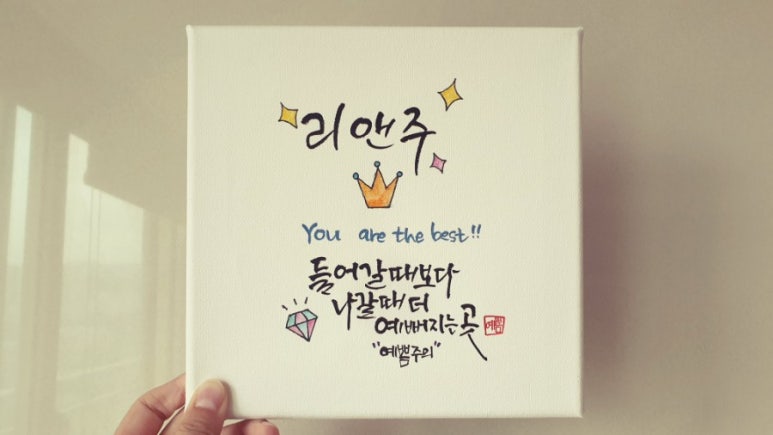 리앤주
You are the best!!
들어갈때보다
나갈때 더
예뻐지는 곳
예쁨
"예쁨주의"